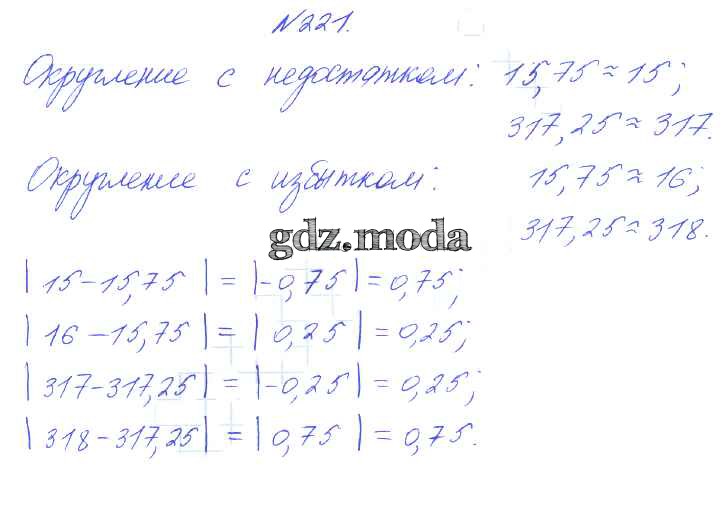 N221.
Округление с недостатком: 15,75 ≈ 15;
317,25 ≈ 317.
Округление с избытком: 15,75 ≈ 16;
317,25 ≈ 318.
gdz.moda
|15-15,75| = |-0,75| = 0,75;
|16-15,75| = |0,25| = 0,25;
|317-317,25| = |-0,25| = 0,25;
|318-317,25| = |0,75| = 0,75.